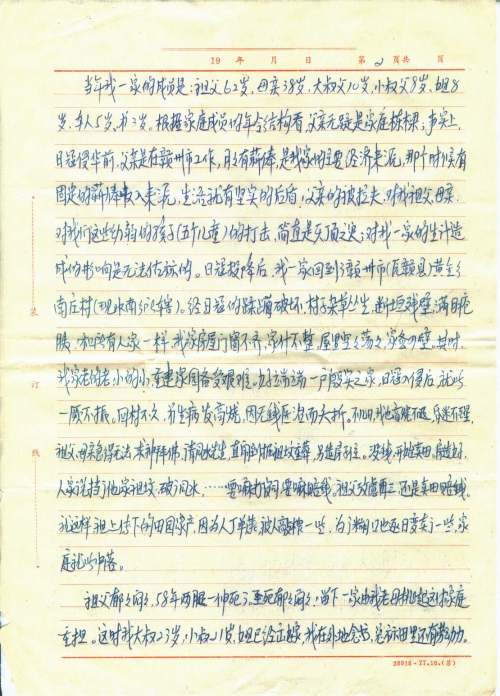 19 年 月 日 第 2 页共 页
当年我一家的成员是：祖父62岁，母亲38岁，大叔父10岁，小叔父8岁，姐8
岁，本人5岁，弟3岁。根据家庭成员的年令结构看，父亲无疑是家庭栋梁，事实上，
日寇侵华前，父亲是在赣州市工作，月月有薪俸，是我家的主要经济来源，那个时候有
固定的薪俸收入来源，生活就有坚实的后盾，父亲的被拉夫，对我祖父、母亲，
对我们这些幼龄的孩子（五个儿童）的打击，简直是灭顶之灾；对我一家的生计造
成的影响是无法估标的。日寇投降后，我一家回到了赣州市（瓦赣县）黄金乡
南庄村（现水南 辖）。经日寇的践踏破坏，村子杂草丛生，断垣残壁，满目疮
肠，和所有人家一样，我家房屋门窗不齐，家什不整，屋里空空荡荡，家贫四壁。其时，
我家老的老，小的小，重建家园备受艰难，好端端一户殷实之家，日寇入侵后，就此
一厥不振，回村不久，弟生病发高烧，因无钱医治而夭折。不几日，我也高烧不退，昏迷不醒，
祖父、母亲急得无法，求神拜佛，请风水先生，直闹到掘祖坟 ，另造房 。没钱，开始卖田，房造好，
人家说挡了他家祖坟，破了风水，……要嘛打官司，要嘛赔钱。祖父劳 ，还是卖田赔钱，
就这样祖上传下的田园家产，因为人丁单薄，被人敲榨一些，为了糊口也逐日变卖了一些，家
庭就此中落。
祖父郁郁闷闷，58年两腿一伸死了。至死郁郁闷闷，留下一家由我老母挑起这付家庭
重担。这时我大叔23岁，小叔21岁，姐已经出嫁，我在外地念书，总算田里还有劳动力。
装 订 线
28018-77.10.(8)